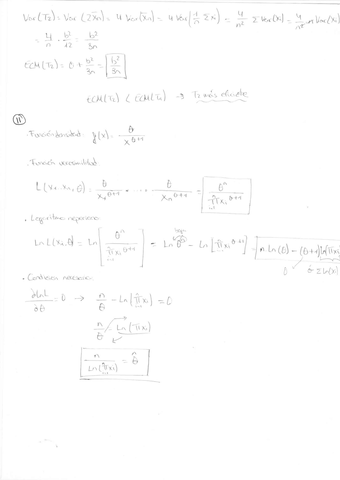 Var(T₂) = Var(2x̄n) = 4 Var(x̄n) = 4 Var(1/n Σxi) = 4/n² Σ Var(xi) = 4/n² n Var(xi)
= 4/n · b²/12 = b²/3n
ECM(T₂) = 0 + b²/3n = b²/3n
ECM(T₂) < ECM(T₁) → T₂ más eficiente
11
· Función densidad: f(x) = θ / x^(θ+1)
· Función verosimilitud
L(x₁...xn, θ) = θ/x₁^(θ+1) · ... · θ/xn^(θ+1) = θⁿ / Πxi^(θ+1)
· Logaritmo neperiano
Ln L(xi, θ) = Ln [θⁿ / Πxi^(θ+1)] = Ln θⁿ - Ln [Πxi^(θ+1)] = n Ln(θ) - (θ+1) Ln(Πxi)
θ Σ ln(xi)
· Condición necesaria
∂lnL/∂θ = 0 → n/θ - Ln(Πxi) = 0
n/θ Ln(Πxi)
n / Ln(Πxi) = θ̂